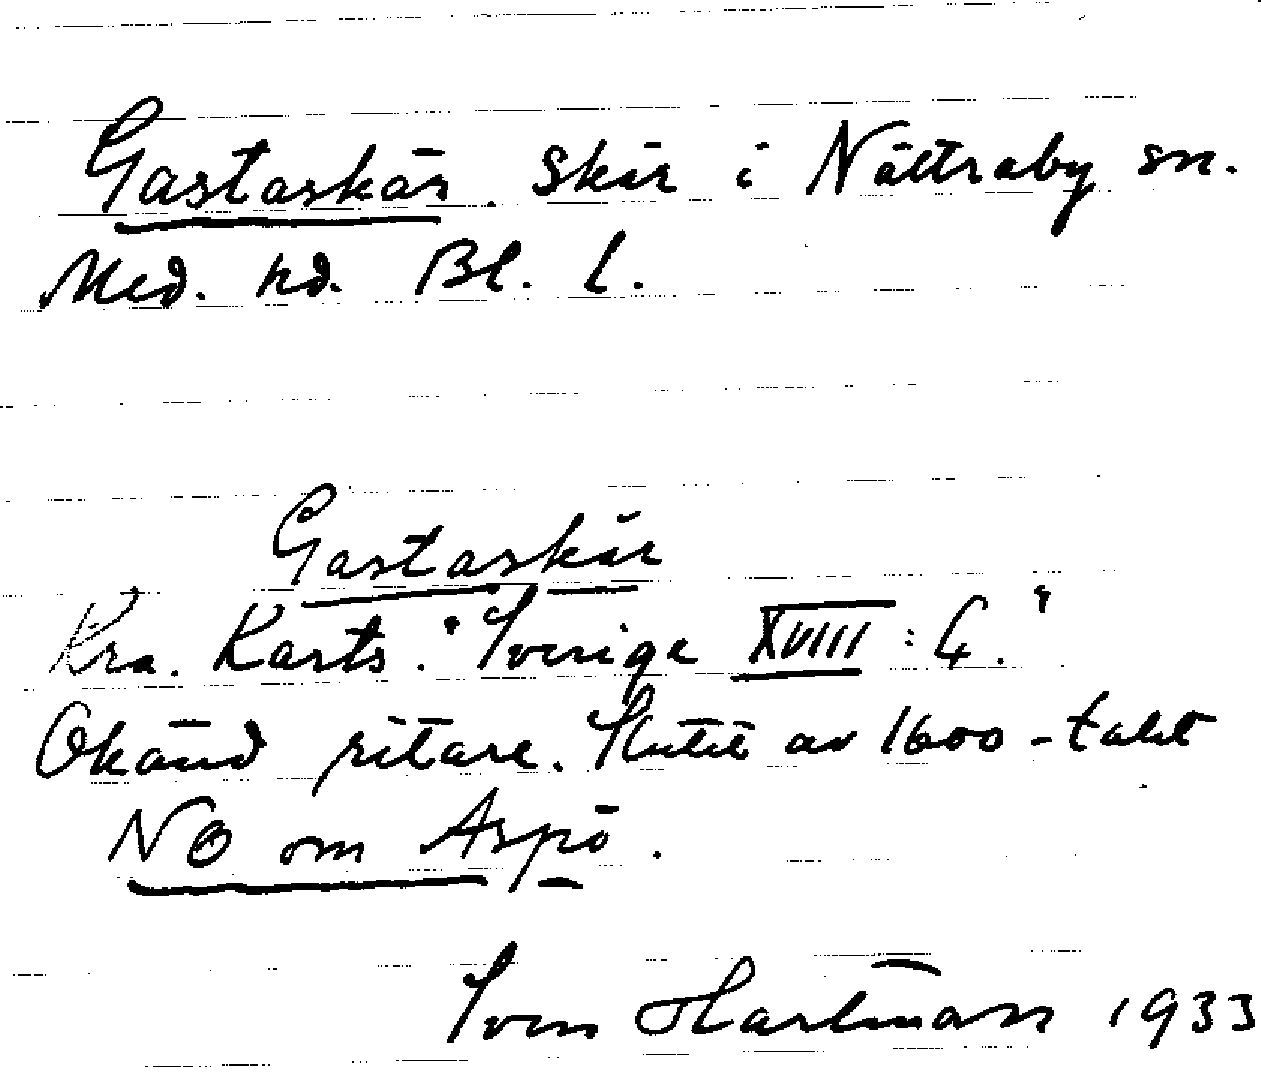 Gastaskär. Skär i Nättraby sn.
Med. hd. Bl. l.
Gastaskär
Kra. Karts. "Sverige XVIII : 4."
Okänd ritare. Slutet av 1600-talet
NO om Aspö.
Sven Hartman 1933